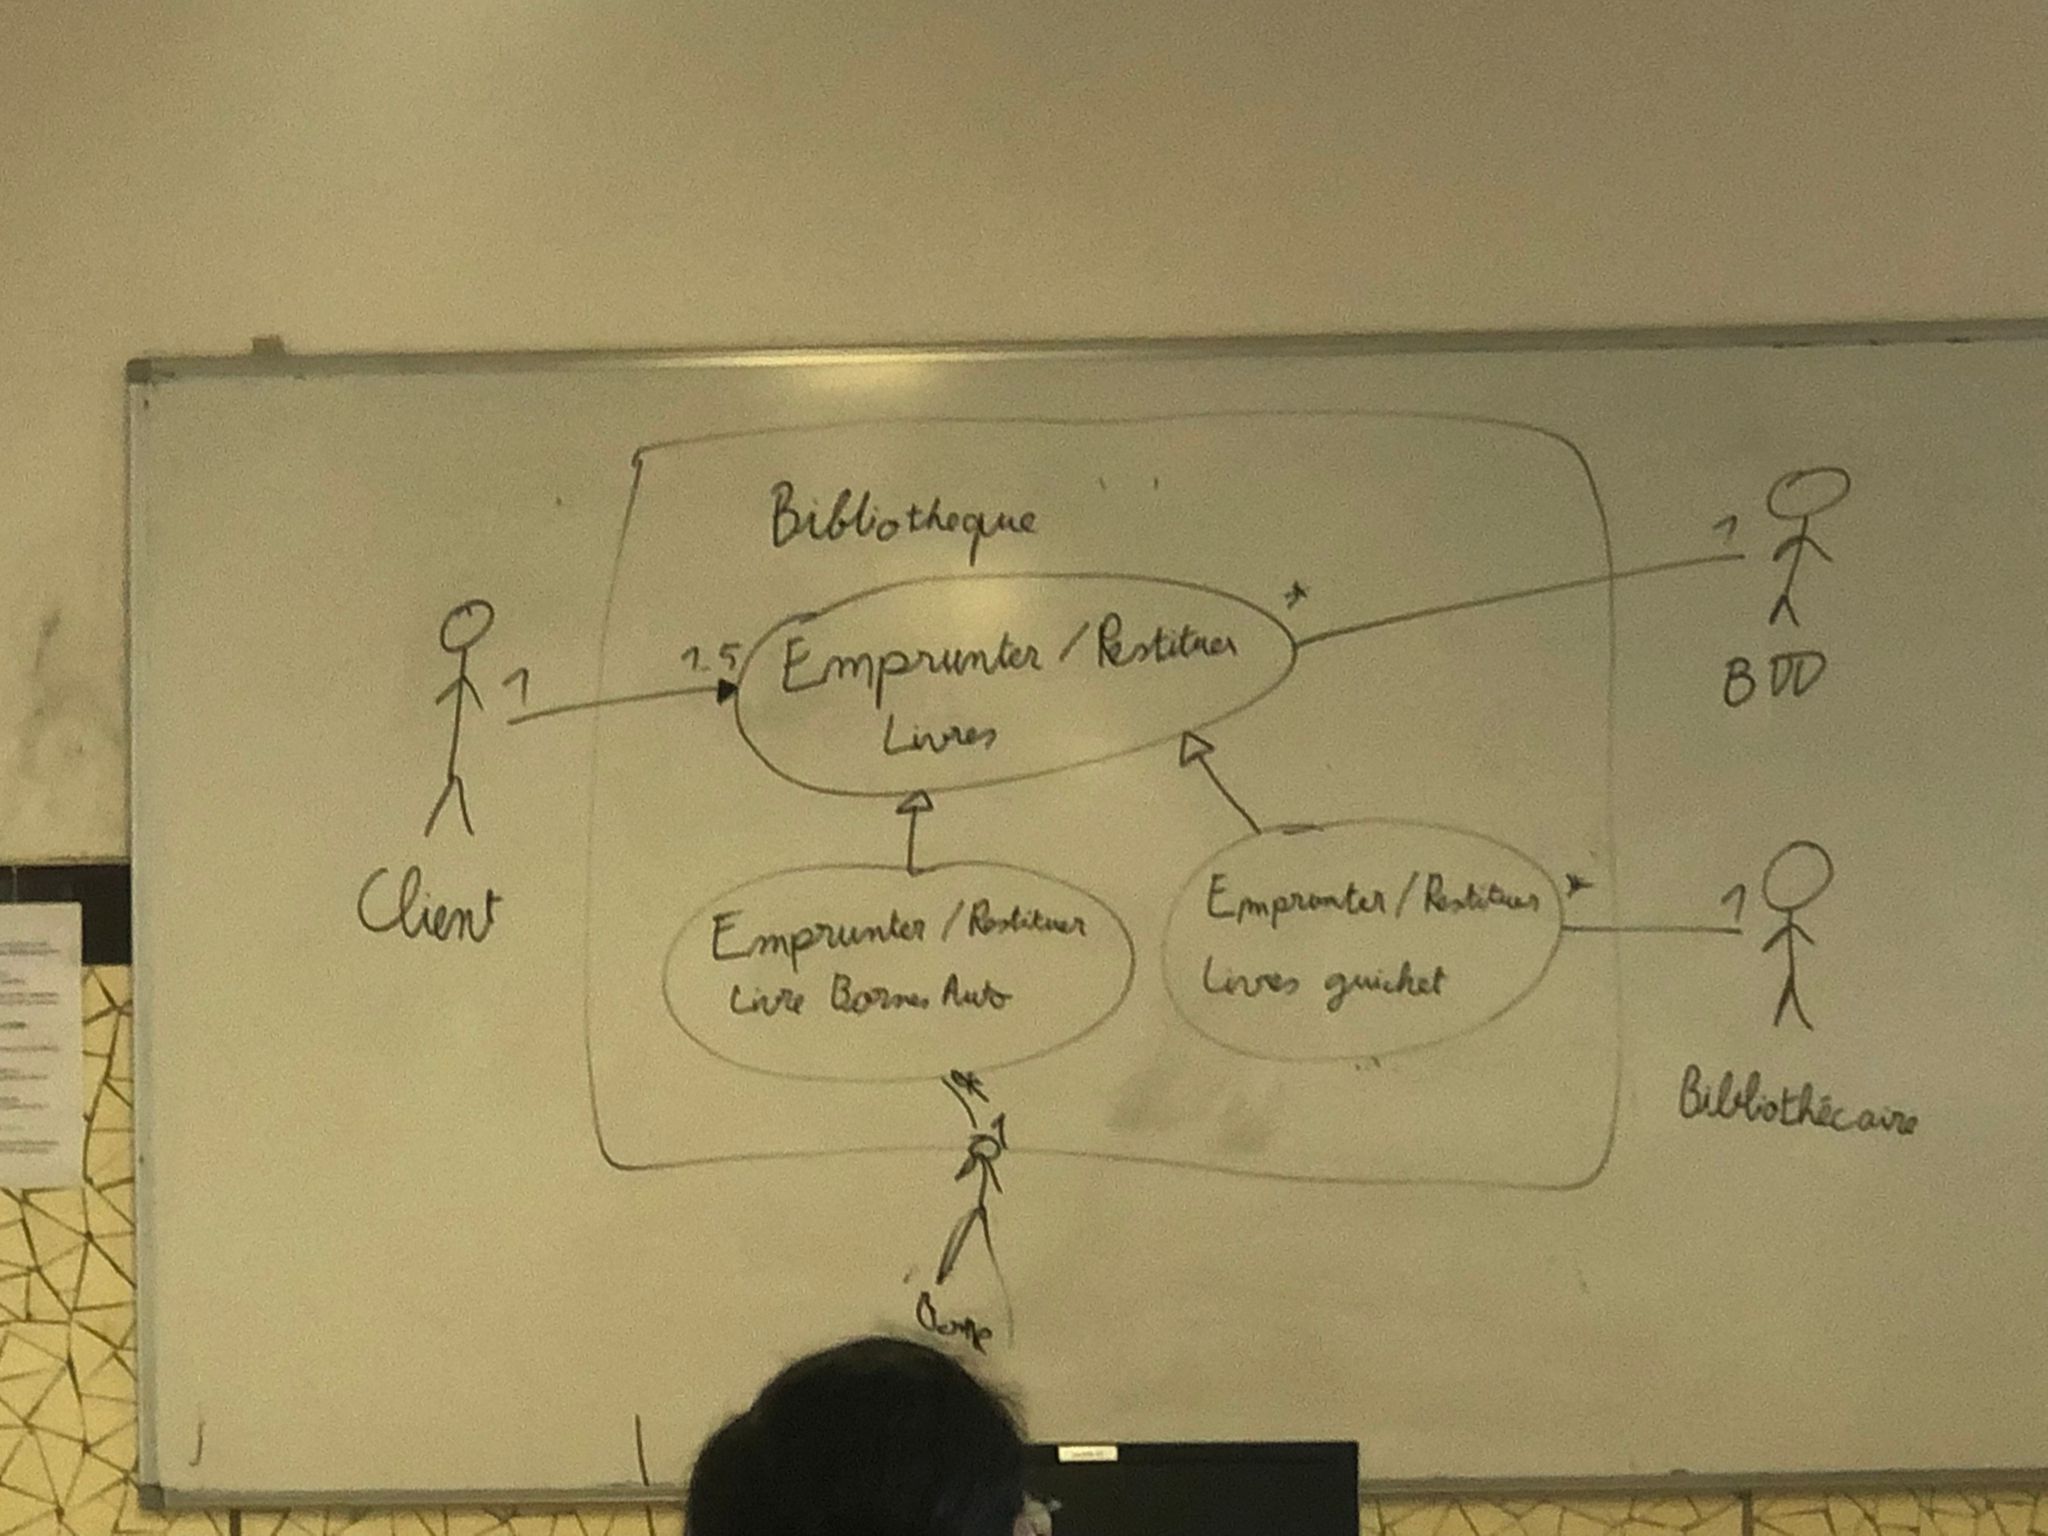 Bibliotheque
Client
1
1.5
Emprunter / Restituer
Livres
*
1
BDD
Emprunter / Restituer
Livre Bornes Auto
*
1
Borne
Emprunter / Restituer
Livres guichet
*
1
Bibliothécaire